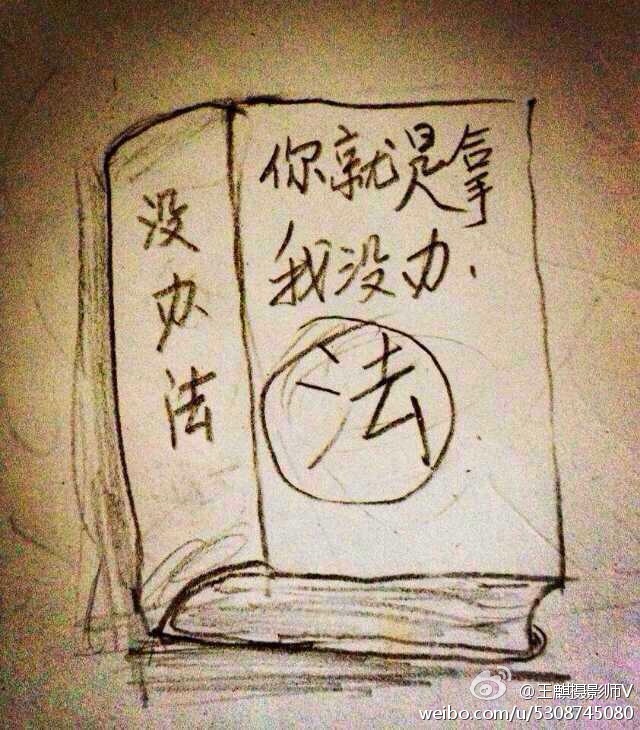 没办法
你就是拿
我没办
法
@王麒摄影师V
weibo.com/u/5308745080